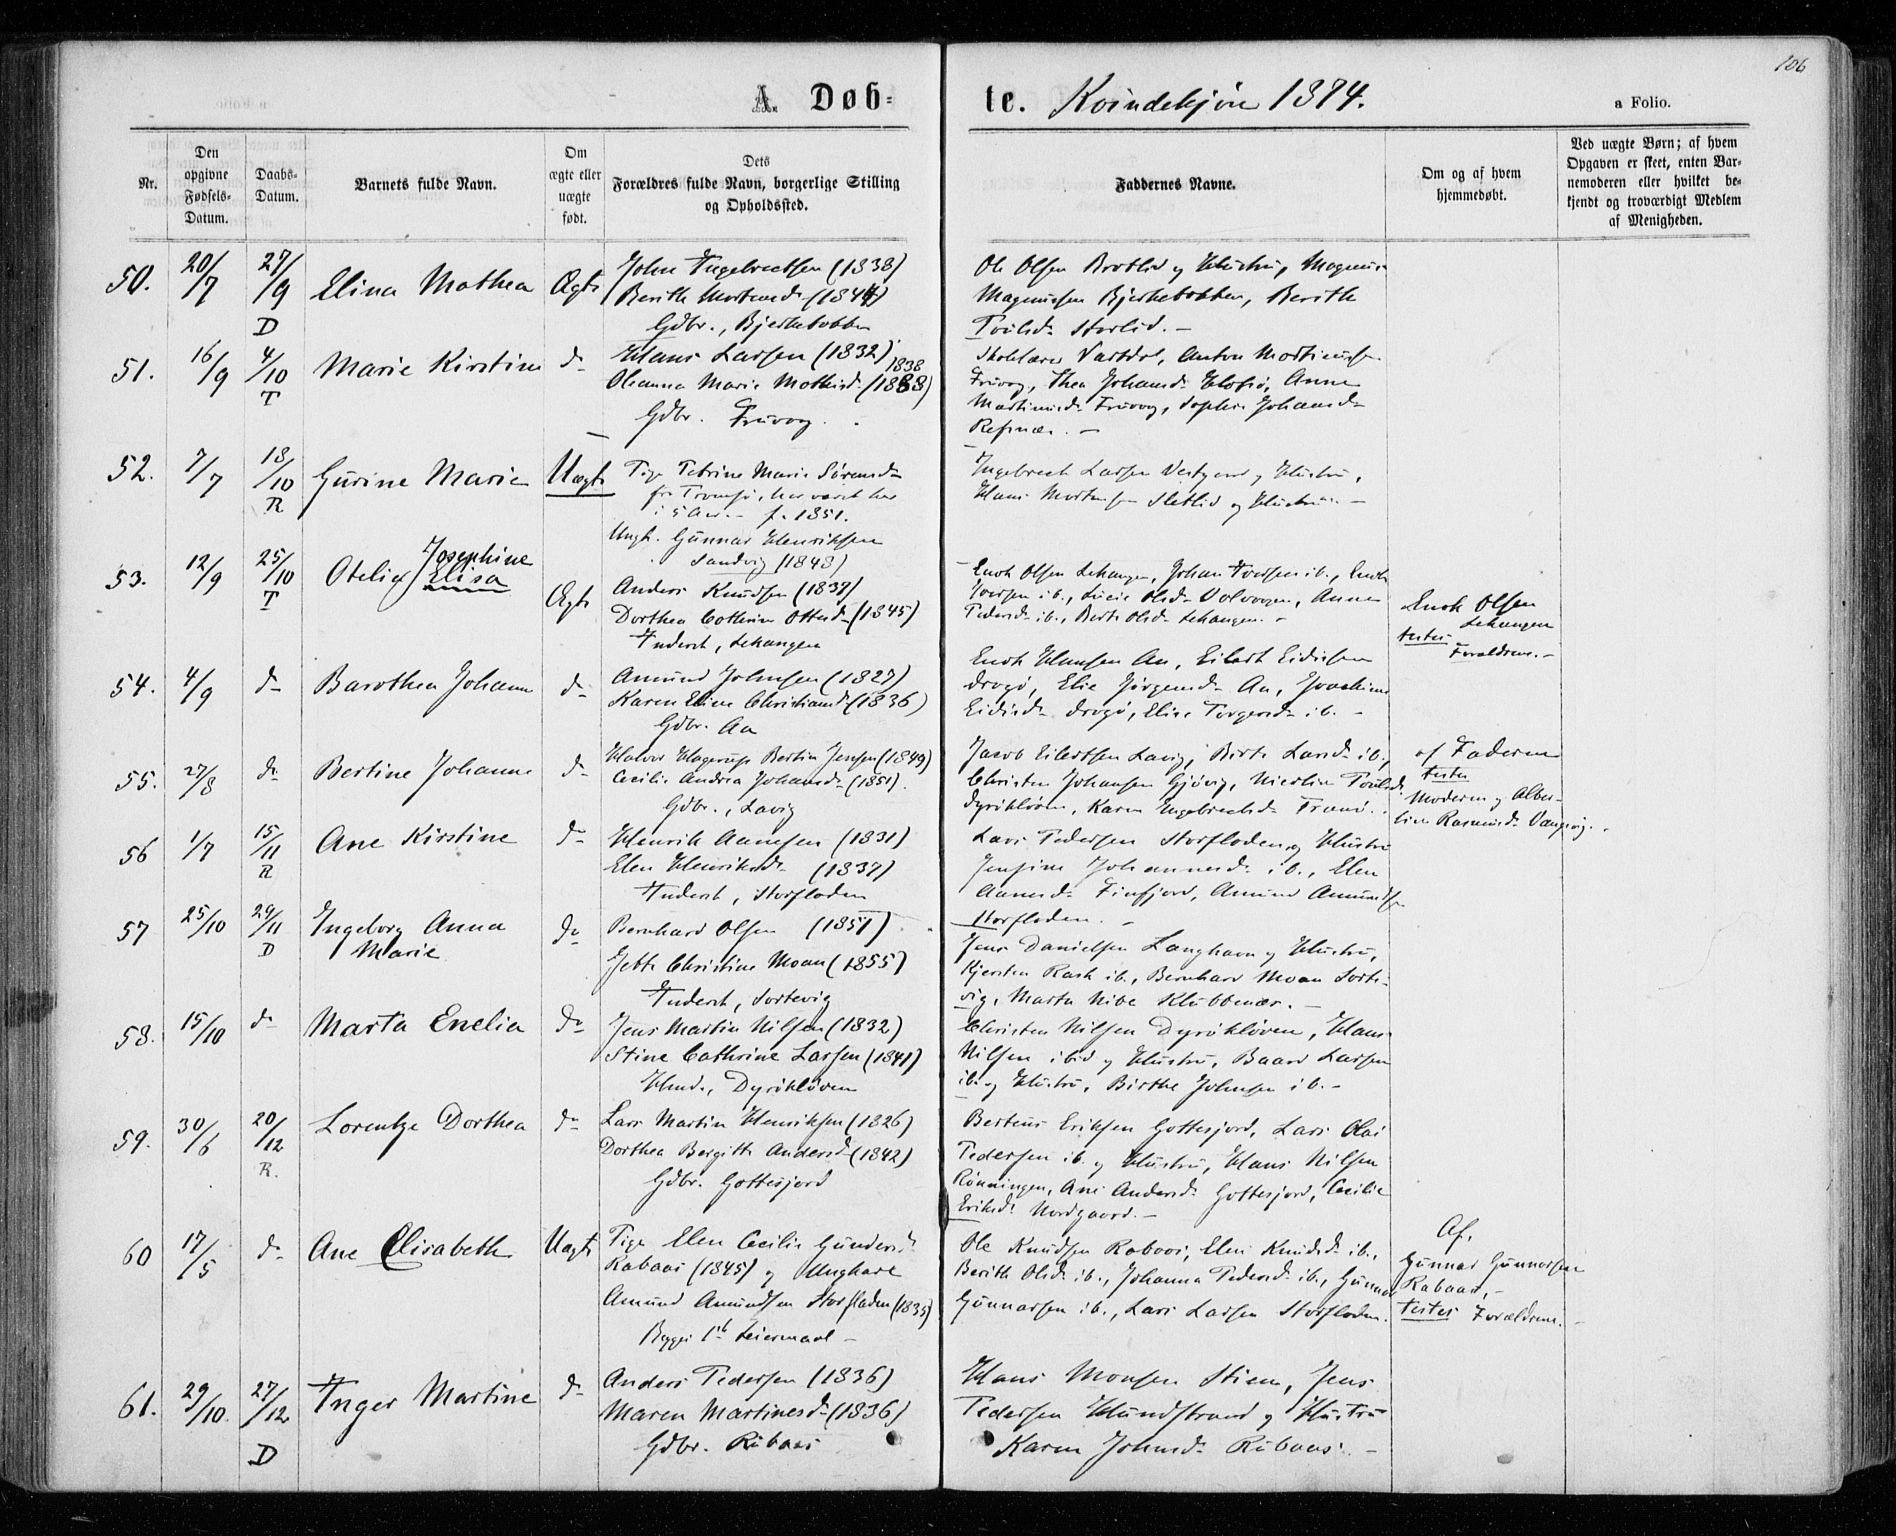 106
A. Døb-
te. Kvindekjøn 1874.
a Folio.
Nr.
Den
opgivne
Fødsels-
Datum.
Daabs-
Datum.
Barnets fulde Navn.
Om
ægte eller
uægte
født.
Dets
Forældres fulde Navn, borgerlige Stilling
og Opholdssted.
Faddernes Navne.
Om og af hvem
hjemmedøbt.
Ved uægte Børn; af hvem
Opgaven er skeet, enten Bar-
nemoderen eller hvilket be-
kjendt og troværdigt Medlem
af Menigheden.
50. 20/7 27/9 D Elina Mathea Ægte
John Ingebrectsen (1838)
Berith Mortensd. (1844)
Gdbr., Bjerkebobben
Ole Olsen Brotlid og Hustru, Magnus
Magnussen Bjerkebobben, Berith
Poulsd. Storlid. -
51. 16/9 4/10 T Marie Kirstine do
Hans Larsen (1832)
1838
Oleanna Marie Mathisd. (1838)
Gdbr. Fruvog.
Skolelærer Vartdal, Anton Martinussen
Fruvog, Thea Johansd. Anna
Martinusd. Fruvog, Sophie Johansd.
Refsnæs. -
52. 7/7 18/10 R Gurine Marie Uægte
Pige Petrine Marie Sørensd.
fr Tromsø, har været her
i 5 Aar. - f. 1851.
Ungk. Gunnar Henriksen
Sandvig (1848)
Ingebrect Larsen Vestgaard og Hustru,
Hans Mortensen Sletlid og Hustru. -
53. 12/9 25/10 T Otelie Josephine
Elisa Ægte
Anders Knudsen (1837)
Dorthea Cathrine Ottesd. (1845)
Inderst, Lekangen
Enok Olsen Lekangen, Johan Iversen ib., Enok
Iversen ib., Lucie Olsd. Volvogen, Anne
Pedersd. ib., Berte Olsd. Lekangen. -
Enok Olsen
Lekangen
testes
Forældrene. -
54. 4/9 do Barothea Johanne do
Amund Johnsen (1827)
Karen Eline Christiansd. (1836)
Gdbr. Aa
Enok Hansen Aa, Eilert Eidissen
Drogø, Elie Jørgensd. Aa, Joachime
Eidisd. Drogø, Elise Torgersd. ib. -
55. 27/8 do Bertine Johanne do
Halvor Hagerup Bertin Jensen (1849)
Cecilie Andrea Johansd. (1851).
Gdbr., Lavig
Jacob Eilertsen Lavig, Birte Larsd. ib.,
Christen Johansen Gjøvig, Nicoline Poulsd.
Dyrökløven, Karen Ingebrectsd. Tranø.
af Faderen
testes
Moderen og Alber-
tine Rasmusd. Vangsvig.
56 1/7 15/11 R Ane Kirstine do
Henrik Aanesen (1831)
Elen Henriksd. (1837)
Inderst, Storfloden
Lars Pedersen Storfloden og Hustru
Jensine Johannesd. ib., Elen
Aanesd. Finfjord, Amund Amundsen
Storfloden. -
57 25/10 29/11 D Ingeborg Anna
Marie do
Bernhard Olsen (1851).
Jette Christine Moan (1855)
Inderst, Sortevig
Jens Danielsen Langhavn og Hustru,
Kjersten Rask ib., Bernhard Moan Sorte-
vig, Marta Nibe Klubbenæs. -
58. 15/10 do Marta Enelia do
Jens Martin Nilsen (1832)
Stine Cathrine Larsen (1841)
Hmd., Dyrökløven
Christen Nilsen Dyrökløven, Hans
Nilsen ibid og Hustru, Baard Larsen
ib. og Hustru, Birthe Johnsen ib. -
59. 30/6 20/12 R. Lorentze Dorthea do
Lars Martin Henriksen (1826)
Dorthea Bergitte Andersd. (1842)
Gdbr. Gottesjord
Berteus Eriksen Gottesjord, Lars Olai
Pedersen ib. og Hustru, Hans Nilsen
Rönningen, Ane Andersd. Gottesjord, Cecilie
Eriksd. Nordgaard. -
60 17/5 do Ane Elisabeth Uægte
Pige Elen Cecilie Gundersd.
Rabaas (1845) og Ungkarl
Amund Amundsen Storfloden (1835)
Begges 1ste Leiermaal -
Ole Knudsen Rabaas, Elen Knudsd. ib.,
Berith Olsd. ib., Johanna Pedersd. ib., Gunnar
Gunnarsen ib., Lars Larsen Storfloden.
Af,
Gunnar Gunnarsen
Rabaas, -
testes Forældrene. -
61. 29/10 27/12 D Inger Martine do
Anders Pedersen (1836)
Maren Martinesd. (1836)
Gdbr. Rübaas
Hans Monsen Stien, Jens
Pedersen Hundstrand og Hustru
Karen Johnsd. Rübaas. -